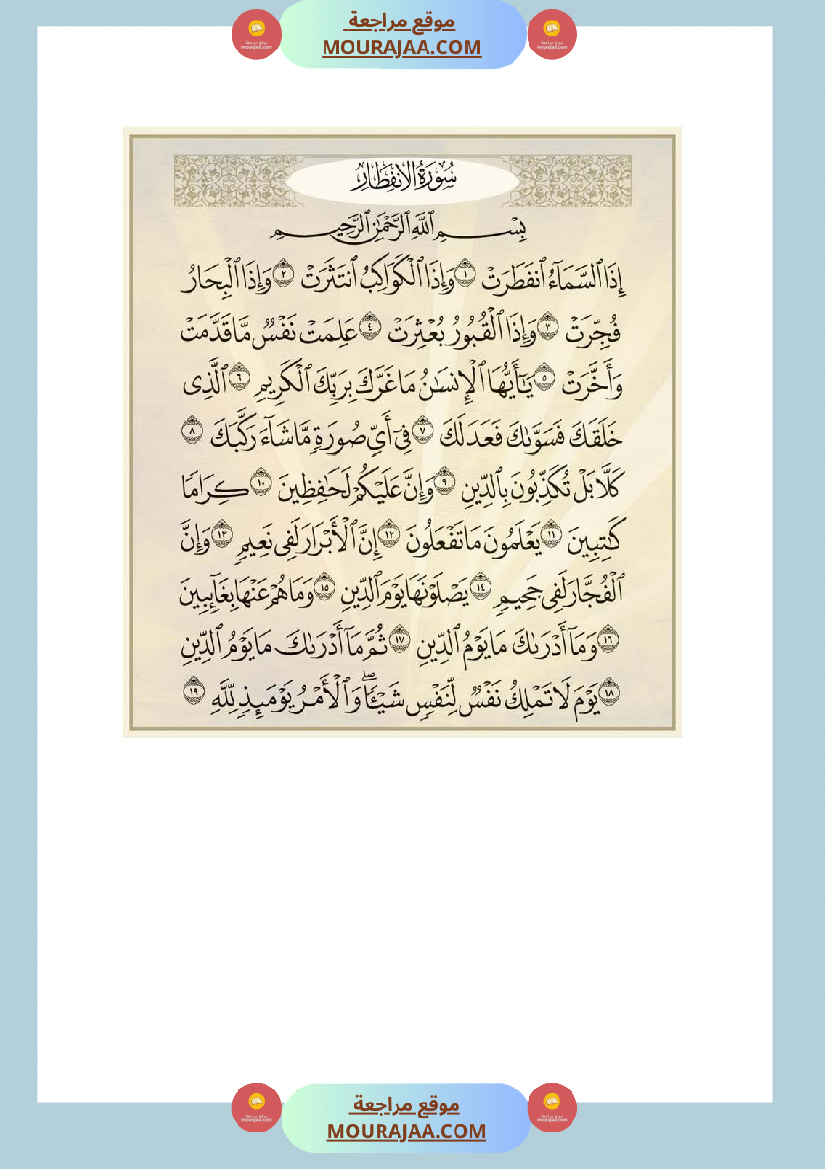 موقع مراجعة
MOURAJAA.COM
سُورَةُ الِانفِطَارِ
بِسْمِ ٱللَّهِ ٱلرَّحْمَٰنِ ٱلرَّحِيمِ
إِذَا ٱلسَّمَآءُ ٱنفَطَرَتْ ١ وَإِذَا ٱلْكَوَاكِبُ ٱنتَثَرَتْ ٢ وَإِذَا ٱلْبِحَارُ
فُجِّرَتْ ٣ وَإِذَا ٱلْقُبُورُ بُعْثِرَتْ ٤ عَلِمَتْ نَفْسٌ مَّا قَدَّمَتْ
وَأَخَّرَتْ ٥ يَٰٓأَيُّهَا ٱلْإِنسَٰنُ مَا غَرَّكَ بِرَبِّكَ ٱلْكَرِيمِ ٦ ٱلَّذِى
خَلَقَكَ فَسَوَّىٰكَ فَعَدَلَكَ ٧ فِىٓ أَىِّ صُورَةٍ مَّا شَآءَ رَكَّبَكَ ٨
كَلَّا بَلْ تُكَذِّبُونَ بِٱلدِّينِ ٩ وَإِنَّ عَلَيْكُمْ لَحَٰفِظِينَ ١٠ كِرَامًا
كَٰتِبِينَ ١١ يَعْلَمُونَ مَا تَفْعَلُونَ ١٢ إِنَّ ٱلْأَبْرَارَ لَفِى نَعِيمٍ ١٣ وَإِنَّ
ٱلْفُجَّارَ لَفِى جَحِيمٍ ١٤ يَصْلَوْنَهَا يَوْمَ ٱلدِّينِ ١٥ وَمَا هُمْ عَنْهَا بِغَآئِبِينَ
١٦ وَمَآ أَدْرَىٰكَ مَا يَوْمُ ٱلدِّينِ ١٧ ثُمَّ مَآ أَدْرَىٰكَ مَا يَوْمُ ٱلدِّينِ
١٨ يَوْمَ لَا تَمْلِكُ نَفْسٌ لِّنَفْسٍ شَيْـًٔا ۖ وَٱلْأَمْرُ يَوْمَئِذٍ لِّلَّهِ ١٩
موقع مراجعة
MOURAJAA.COM